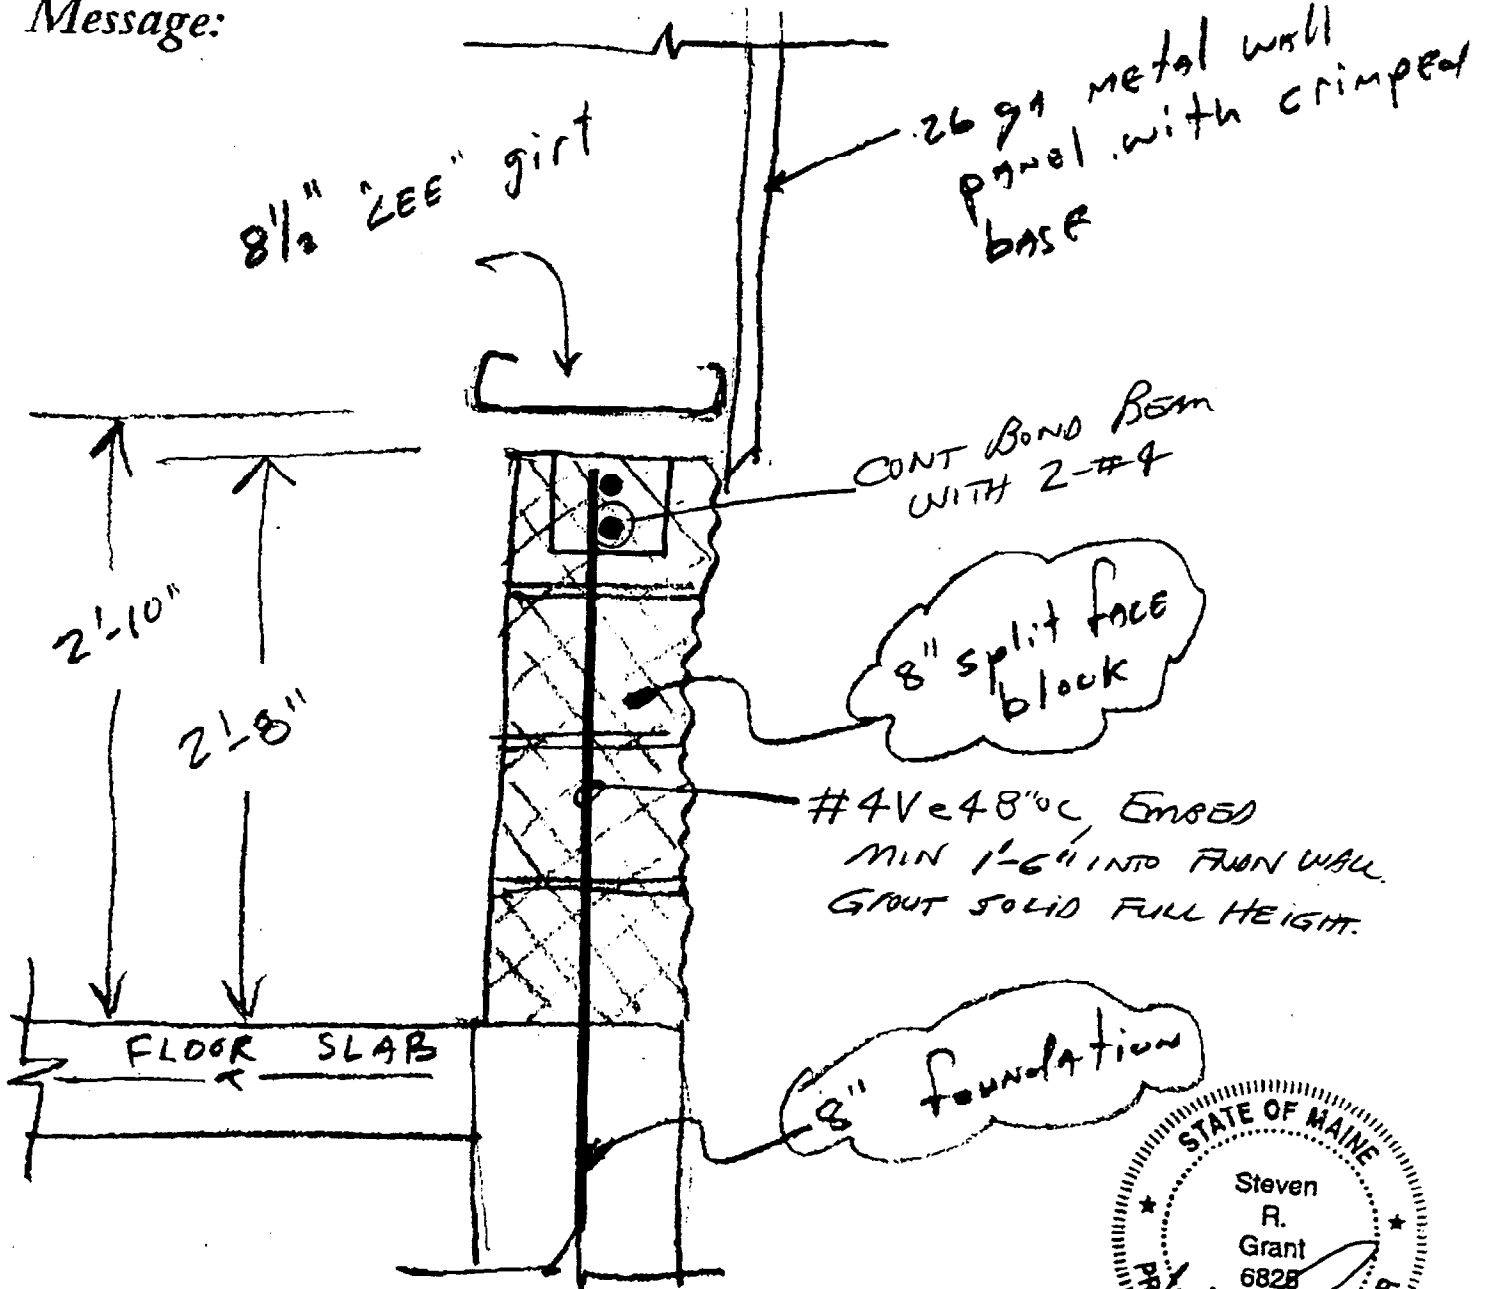 Message:
26 ga metal wall
panel with crimped
base
8 1/2" "ZEE" girt
CONT BOND BEAM
WITH 2-#4
2'-10"
2'-8"
8" split face
block
#4V@48"OC, EMBED
MIN 1'-6" INTO FNDN WALL.
GROUT SOLID FULL HEIGHT.
FLOOR SLAB
8" foundation
STATE OF MAINE
Steven
R.
Grant
6828